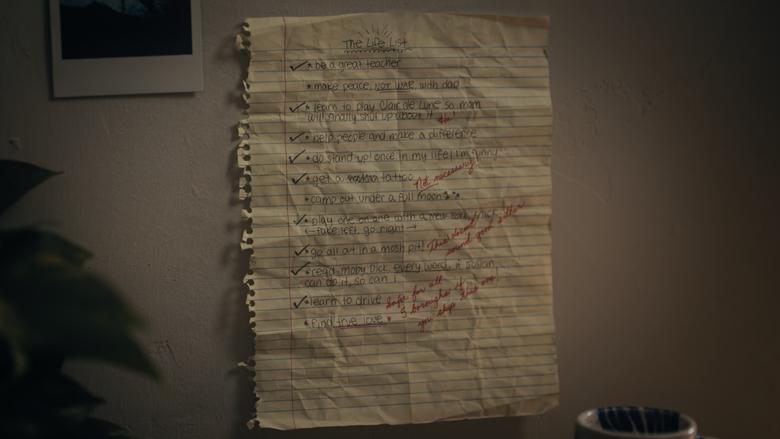 The Life List
✓ • be a great teacher
• make peace, NOT WAR, with dad
✓ • learn to play Clair de Lune so mom
will finally shut up about it Ha!
✓ • help people and make a difference
✓ • do stand up! once in my life! I'm funny
✓ • get a tattoo Not necessary!
• camp out under a full moon
✓ • play one on one with a new york
←fake left, go right→
✓ • go all out in a mosh pit! This doesn't
sound good either
✓ • read moby Dick, every word, if Susan
can do it, so can I
✓ • learn to drive Safe for all
5 boroughs if
you skip this one!
• find true love